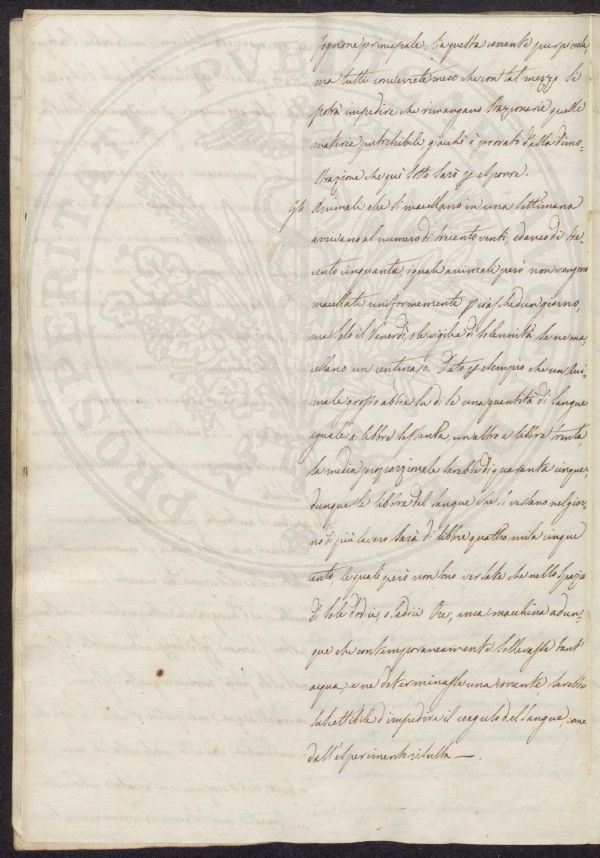 zione principale sia questa corrente perpetua
ma tutti converrete meco che con tal mezzo si
potrà impedire che rimangano stazionarie quelle
materie putrescibili, giacchè è provato dalla dimo-
strazione che quì sotto sarò p esporre.
Gli Animali che si macellano in una settimana
arrivano al numero di trecento venti, ed anco di tre
cento cinquanta, i quali animali però non vengono
macellati uniformemente p ciascheduno giorno,
ma solo il Venerdì, o le vigilie di Solennità se ne ma
cellano un centinajo. Dato p esempio che un Ani-
male grosso abbia in di se una quantità di sangue
eguale a libbre sessanta, un altro a libbre trenta
la media proporzionale sarebbe di quaranta cinque,
dunque le libbre del sangue che si versano nel gior-
no di più lavoro sarà di libbre quattro mila cinque
cento, le quali però non sono versate che nello spazio
di sole dodici, o sedici Ore; una macchina adun-
que che contemporaneamente sollevasse tant'
acqua, e ne determinasse una corrente, sarebbe
suscettibile d'impedire il coagulo del sangue, come
dall'esperimento risulta —.
PROSPERITATI PUBLICAE